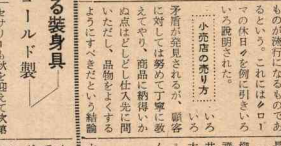 ものが流行になるものであ
るという。これには〃ロー
マの休日〃を例に引きいろ
いろ説明された。
小売店の売り方
いろ
矛盾が発見されるが、顧客
に対しては努めて丁寧に教
えてやり、商品に納得いか
ぬ点はどしどし仕入先に問
いただし、品物をよくする
ようにすべきだという結論
る装身具
ールド製
を迎えて次第